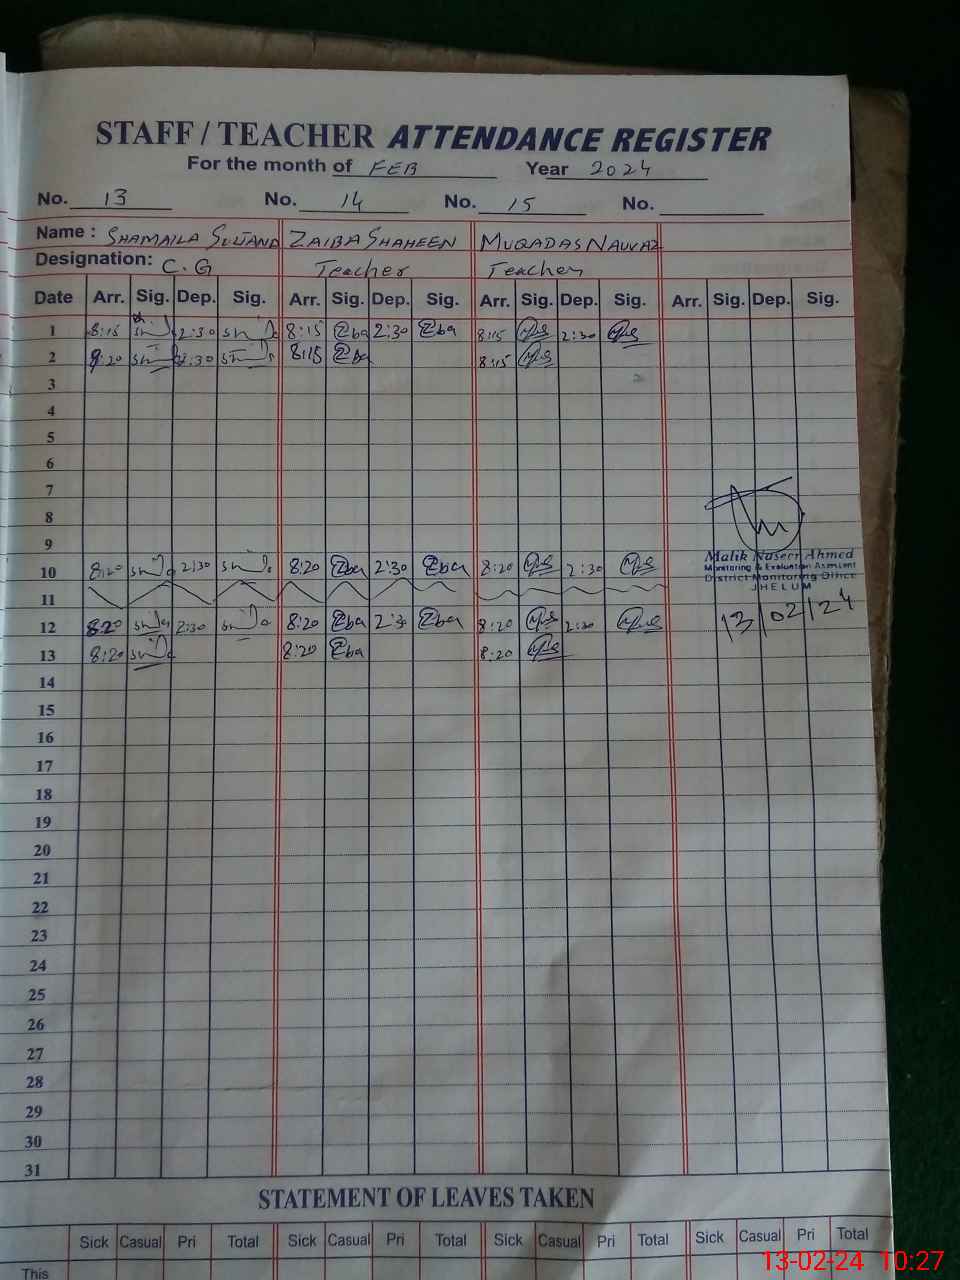 STAFF / TEACHER ATTENDANCE REGISTER
For the month of FEB Year 2024
No. 13 No. 14 No. 15 No.
Name : SHAMAILA SULTANA ZAIBA SHAHEEN MUQADAS NAWAZ
Designation: C.G Teacher Teacher
Date Arr. Sig. Dep. Sig. Arr. Sig. Dep. Sig. Arr. Sig. Dep. Sig. Arr. Sig. Dep. Sig.
1 8:15 2:30 8:15 Zba 2:30 Zba 8:15 2:30
2 8:20 2:30 8:15 Zba 8:15
3
4
5
6
7
8
9
10 8:20 2:30 8:20 Zba 2:30 Zba 8:20 2:30
11
12 8:20 2:30 8:20 Zba 2:30 Zba 8:20 2:30
13 8:20 8:20 Zba 8:20
Malik Naseer Ahmed
Monitoring & Evaluation Assistant
District Monitoring Office
JHELUM
13/02/24
14
15
16
17
18
19
20
21
22
23
24
25
26
27
28
29
30
31
STATEMENT OF LEAVES TAKEN
Sick Casual Pri Total Sick Casual Pri Total Sick Casual Pri Total Sick Casual Pri Total
This
13-02-24 10:27